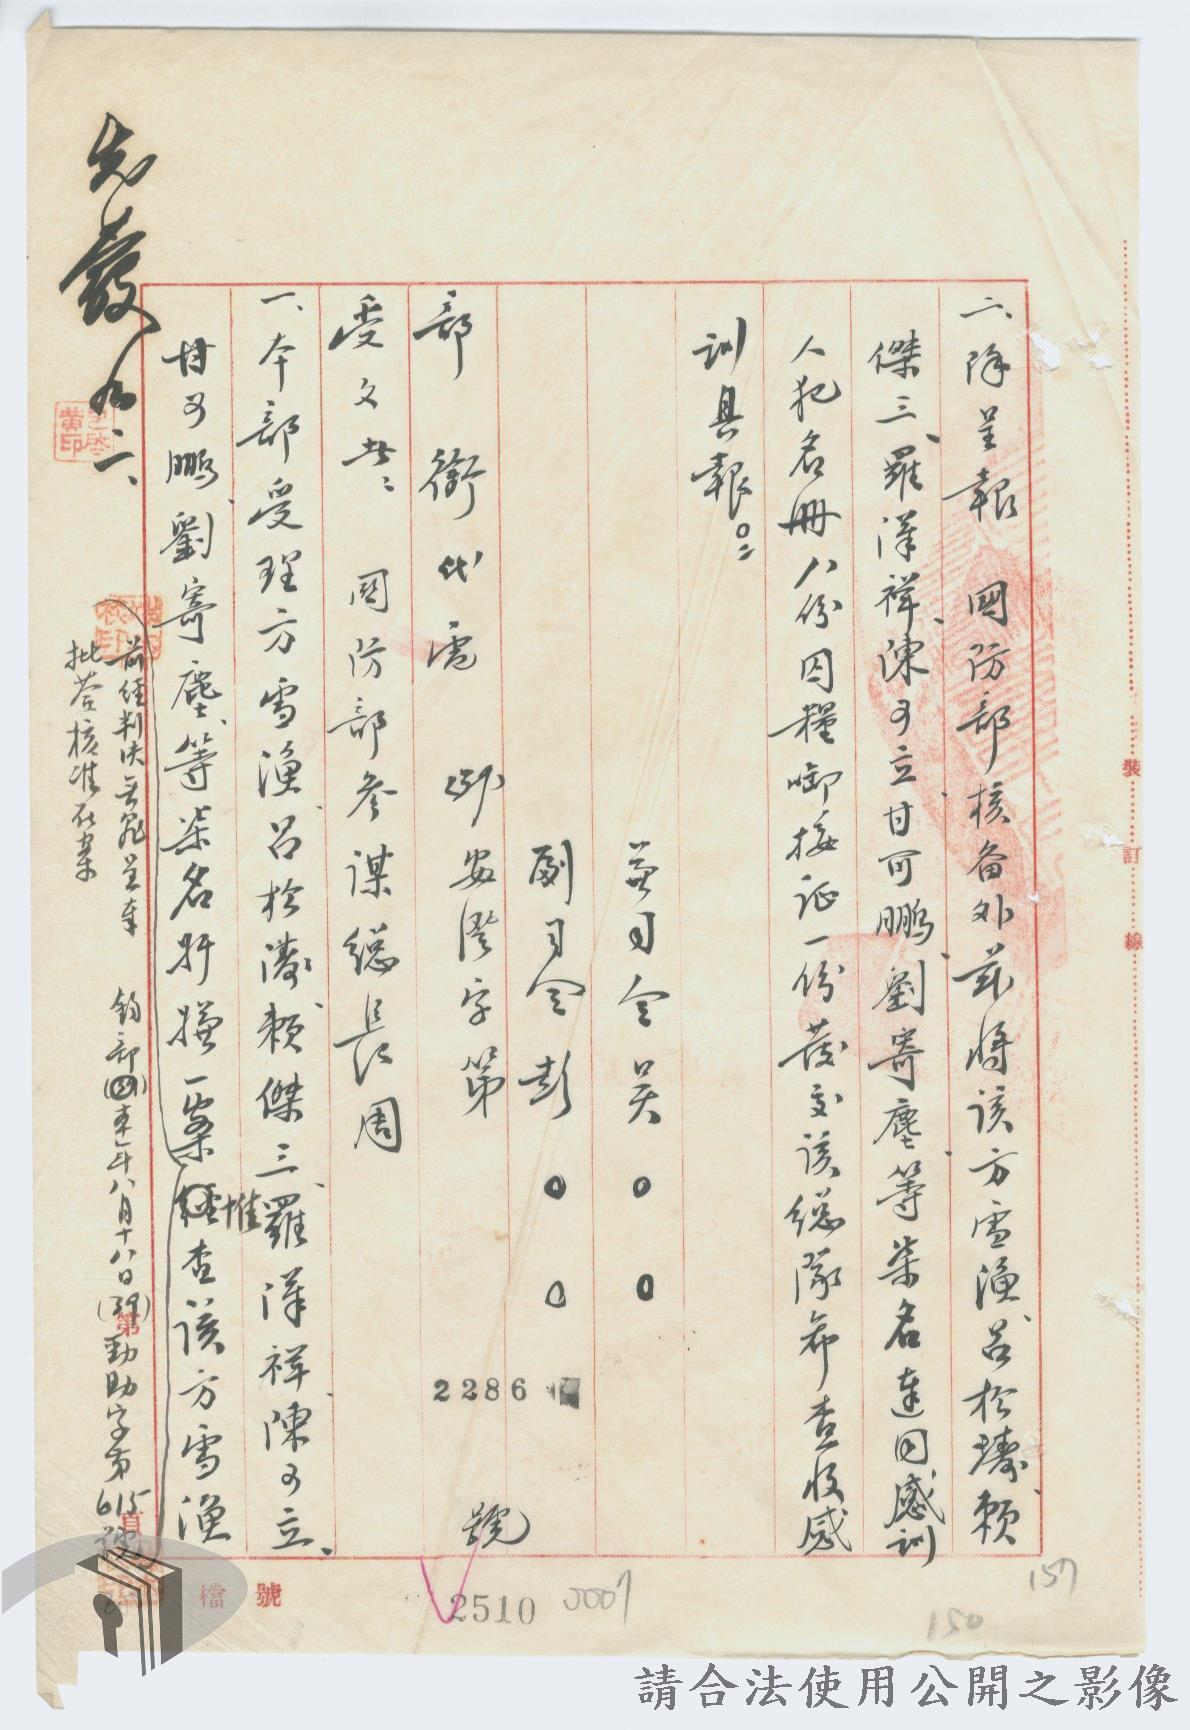 二、除呈報 國防部核备外茲將該方雪漁、呂松璹、賴
傑三、羅漢祥、陳可立、甘可鵬、劉寄塵等柒名連同感訓
人犯名冊八份囚糧啣接证一份茂交該總隊希查收感
訓具報。
兼司令吳○○
副司令彭○○
部銜代電 安澄字第 2286 號
受文者: 國防部參謀總長周
一、本部受理方雪漁、呂松濤、賴傑三、羅漢祥、陳可立、
甘可鵬、劉寄塵、等柒名奸嫌一案惟查該方雪漁
前經判決無罪呈奉 鈞部四年八月十八日(39)勁助字第615號
批答核准在案
先發 九、二、
黄印
裝訂線
第 頁
檔號
2510
0007
150
157
請合法使用公開之影像